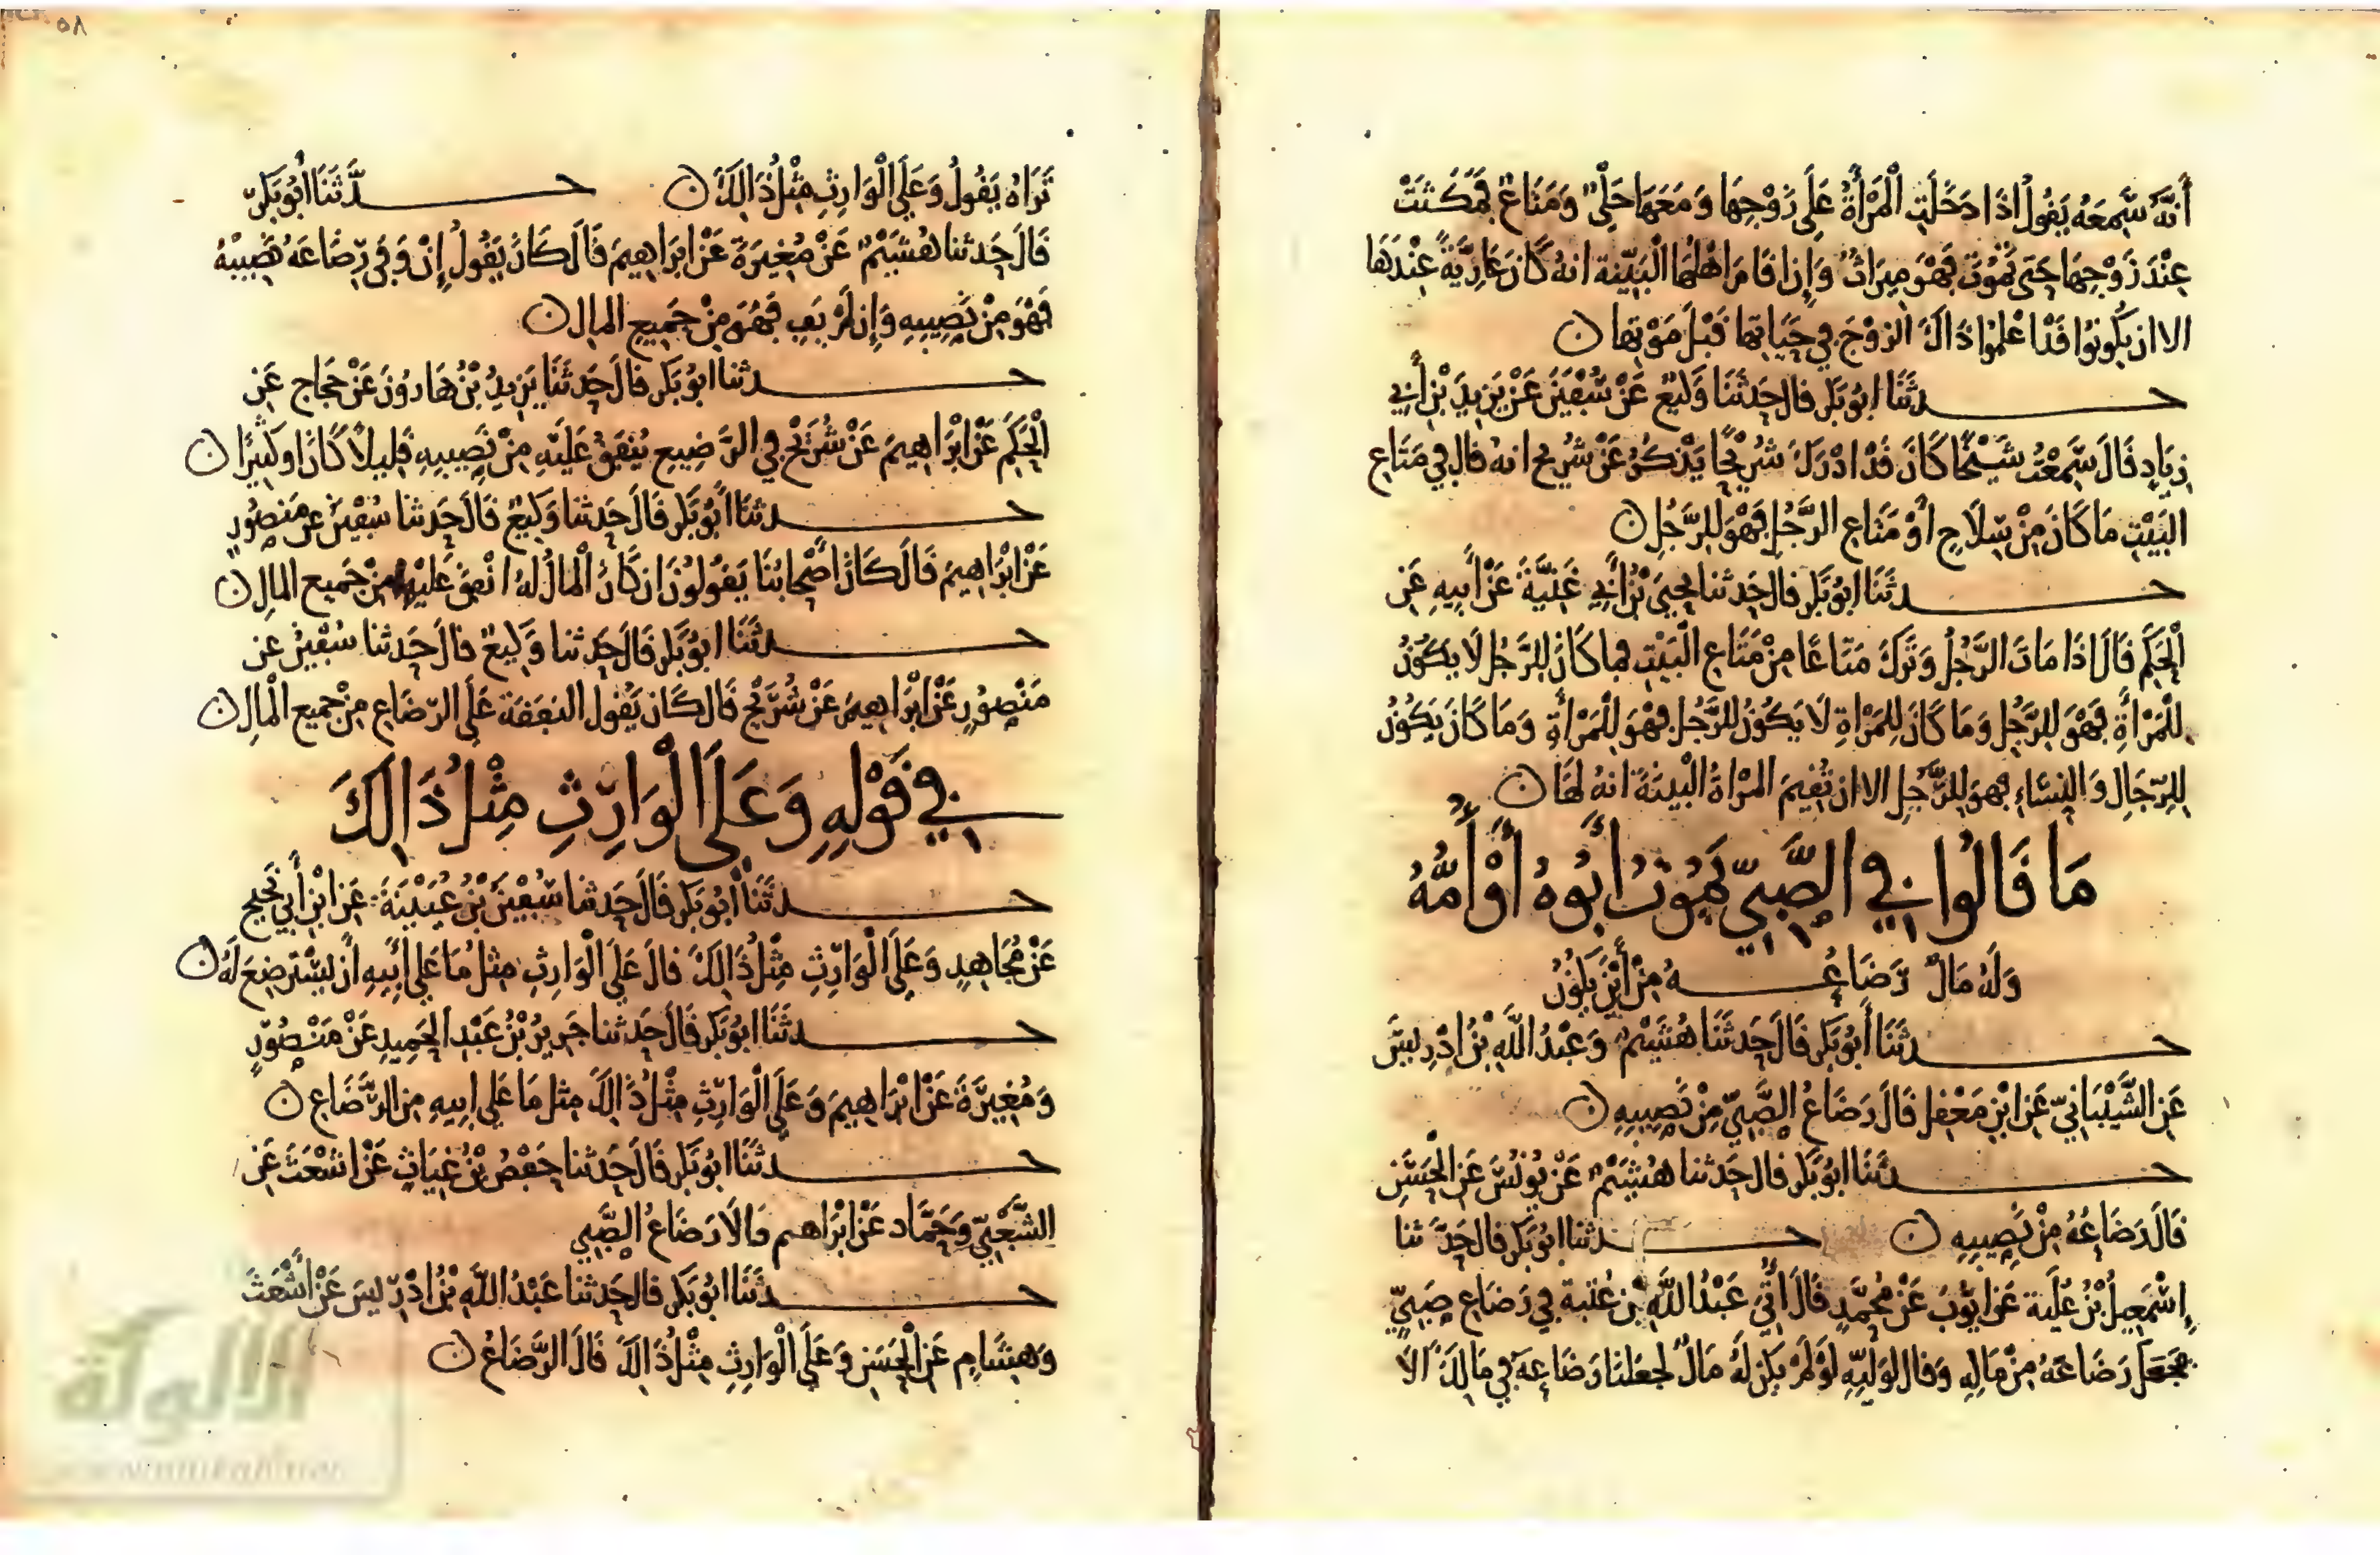 أَنَّهُ سَمِعَهُ يَقُولُ اذَا دَخَلَتِ الْمَرْأَةُ عَلَى زَوْجِهَا وَمَعَهَا حَلْيٌ وَمَتَاعٌ فَمَكَثَتْ
عِنْدَ زَوْجِهَا حَتى تَمُوتَ فَهْوَ مِيرَاثٌ وَإِن اقَامَ اهْلُهَا الْبَيِّنة انهُ كَانَ عَارِيَّةً عِنْدَهَا
الا ان يَكُونُوا قَدْ اعْلَمُوا ذَالكَ الزوْجَ في حَيَاتِهَا قَبْلَ مَوْتِهَا ن
حـدثَنَا ابُو بَكر قالَ حَدثَنَا وَكِيعٌ عَنْ سُفْيَنَ عَنْ يَزِيدَ بْنِ أَبِي
زِيَادٍ قَالَ سَمِعْتُ شَيْخًا كَانَ قَدْ ادْرَكَ شُرَيْحًا يَذْكُرُ عَنْ شُرَيح انهُ قالَ في مَتَاعِ
البَيْتِ مَا كَانَ مِنْ سِلَاحٍ أَوْ مَتَاعِ الرَّجُلِ فَهْوَ لِلرَّجُلِ ن
حـدثَنَا ابُو بَكر قالَ حَدثنا يَحيَى بْنُ أَبِي غَنِيَّةَ عَنْ أَبِيهِ عَنِ
الْحَكَمِ قَالَ اذَا مَاتَ الرَّجُلُ وَتَرَكَ مَتَاعًا مِنْ مَتَاعِ الْبَيْتِ فما كَانَ لِلرَّجُلِ لَا يَكُونُ
لِلْمَرْأَةِ فَهْوَ لِلرَّجُلِ وَمَا كَانَ لِلمَرْاةِ لَا يَكُونُ لِلرَّجُلِ فهْوَ لِلْمَرْأَةِ وَمَا كَانَ يَكُونُ
لِلرِّجَالِ وَالنِسَاءِ فهوَ لِلرَّجُلِ الا ان تُقِيمَ المَرْاةُ الْبَينَةَ انهُ لَهَا ن
مَا قَالُوا فِي الصَّبِيِّ يَمُوتُ أَبُوهُ أَوْ أُمُّهُ
وَلَهُ مَالٌ رَضَاعُـهُ مِنْ أَيْنَ يَكُونُ
حـدثَنَا أَبُو بَكر قَالَ حَدثَنَا هُشَيْمٌ وَعَبْدُ اللَّهِ بْنُ ادْرِيسَ
عَنِ الشَّيْبَانِيِّ عَنِ ابْنِ مَعْقِل قَالَ رَضَاعُ الصَّبِيِّ مِنْ نَصِيبِهِ ن
حـدثَنَا ابُو بَكر قالَ حَدثنا هُشَيْمٌ عَنْ يُونُسَ عَنِ الْحَسَنِ
قَالَ رَضَاعُهُ مِنْ نَصِيبِهِ ن حـدثنا ابُو بَكر قالَ حَدَّثنا
إِسْمَعِيلُ بْنُ عُلَيَّة عَن ايُّوبَ عَنْ مُحَمَّدٍ قَالَ أُتِيَ عَبْدُ اللَّهِ بْن عُتبة في رَضَاعِ صَبِيٍّ
فَجَعَلَ رَضَاعَهُ مِنْ مَالِهِ وَقال لوَلِيِّهِ لَوْ لَمْ يَكن لَهُ مَالٌ لجعَلنا رَضَاعهُ في مَالِكَ الَا
٥٨
تَرَاهُ يَقُولُ وَعَلَى الْوَارِثِ مِثْلُ ذَالِكَ ن حـدَّثَنَا أَبُو بَكر
قَالَ حَدثنا هُشَيْمٌ عَنْ مُغِيرَةَ عَنْ ابْرَاهِيمَ قَالَ كَانَ يَقُولُ إِنْ وَفَى رِضَاعَهُ نَصِيبُهُ
فَهْوَ مِنْ نَصِيبِهِ وَإِن لَمْ يَفِ فَهْوَ مِنْ جَمِيعِ المالِ ن
حـدثنا ابُو بَكر قالَ حَدثَنَا يَزِيدُ بْنُ هَارُونَ عَنْ حَجاج عَنِ
الْحَكَمِ عَنْ ابْرَاهِيمَ عَنْ شُرَيْحٍ فِي الرَّضِيعِ يُنْفَقُ عَلَيْهِ مِنْ نَصِيبِهِ قَلِيلًا كَانَ او كَثِيرًا ن
حـدثَنَا أَبُو بَكر قَالَ حَدثنا وَكِيعٌ قَالَ حَدثنا سُفْيَنُ عن مَنْصُورٍ
عَنْ ابْرَاهِيمَ قَالَ كَانَ أَصْحَابُنَا يَقُولُونَ ان كَانَ الْمَالُ لهُ انْفِقَ عَلَيْهِ مِنْ جَمِيع المالِ ن
حـدثَنَا ابُو بَكر قَالَ حَدثنا وَكِيعٌ قالَ حَدثنا سُفْيَنُ عن
مَنْصُورٍ عَنْ ابْرَاهِيمَ عَنْ شُرَيْحٍ قَالَ كَانَ يَقُول النفَقَة عَلَى الرّضَاعِ مِنْ جَمِيعِ الْمَالِ ن
فِي قَوْلِهِ وَعَلَى الْوَارِثِ مِثْلُ ذَالِكَ
حـدثَنَا أَبُو بَكر قَالَ حَدثنا سُفْيَنُ بْنُ عُيَيْنَةَ عَنِ ابْنِ أَبِي نَجِيح
عَنْ مُجَاهِدٍ وَعَلَى الْوَارِثِ مِثْلُ ذَالِكَ قالَ عَلَى الْوَارِثِ مِثلُ مَا عَلَى أَبِيهِ أَنْ يَسْتَرضِعَ لَهُ ن
حـدثَنَا ابُو بَكر قَالَ حَدثنا جَرِيرُ بْنُ عَبْدِ الحَمِيدِ عَنْ مَنْصُورٍ
وَمُغِيرَةَ عَنْ ابْرَاهِيمَ وَعَلَى الْوَارِثِ مِثْلُ ذَالِكَ مِثلُ مَا عَلَى ابِيهِ مِن الرَّضَاعِ ن
حـدثَنَا ابُو بَكر قَالَ حَدثنا حَفْصُ بْنُ غِيَاثٍ عَنْ اشْعَثَ عَنِ
الشَّعْبِيِّ وَحَمَّاد عَنْ ابْرَاهِيم قَالَا رَضَاعُ الصَّبِي
حـدثَنَا ابُو بَكر قالَ حَدثنا عَبْدُ اللَّهِ بْنُ ادْرِيسَ عَنْ أَشْعَثَ
وَهِشَامٍ عَنِ الْحَسَنِ وَعَلَى الْوَارِثِ مِثْلُ ذَالِكَ قَالَ الرَّضَاعُ ن
الألوكة